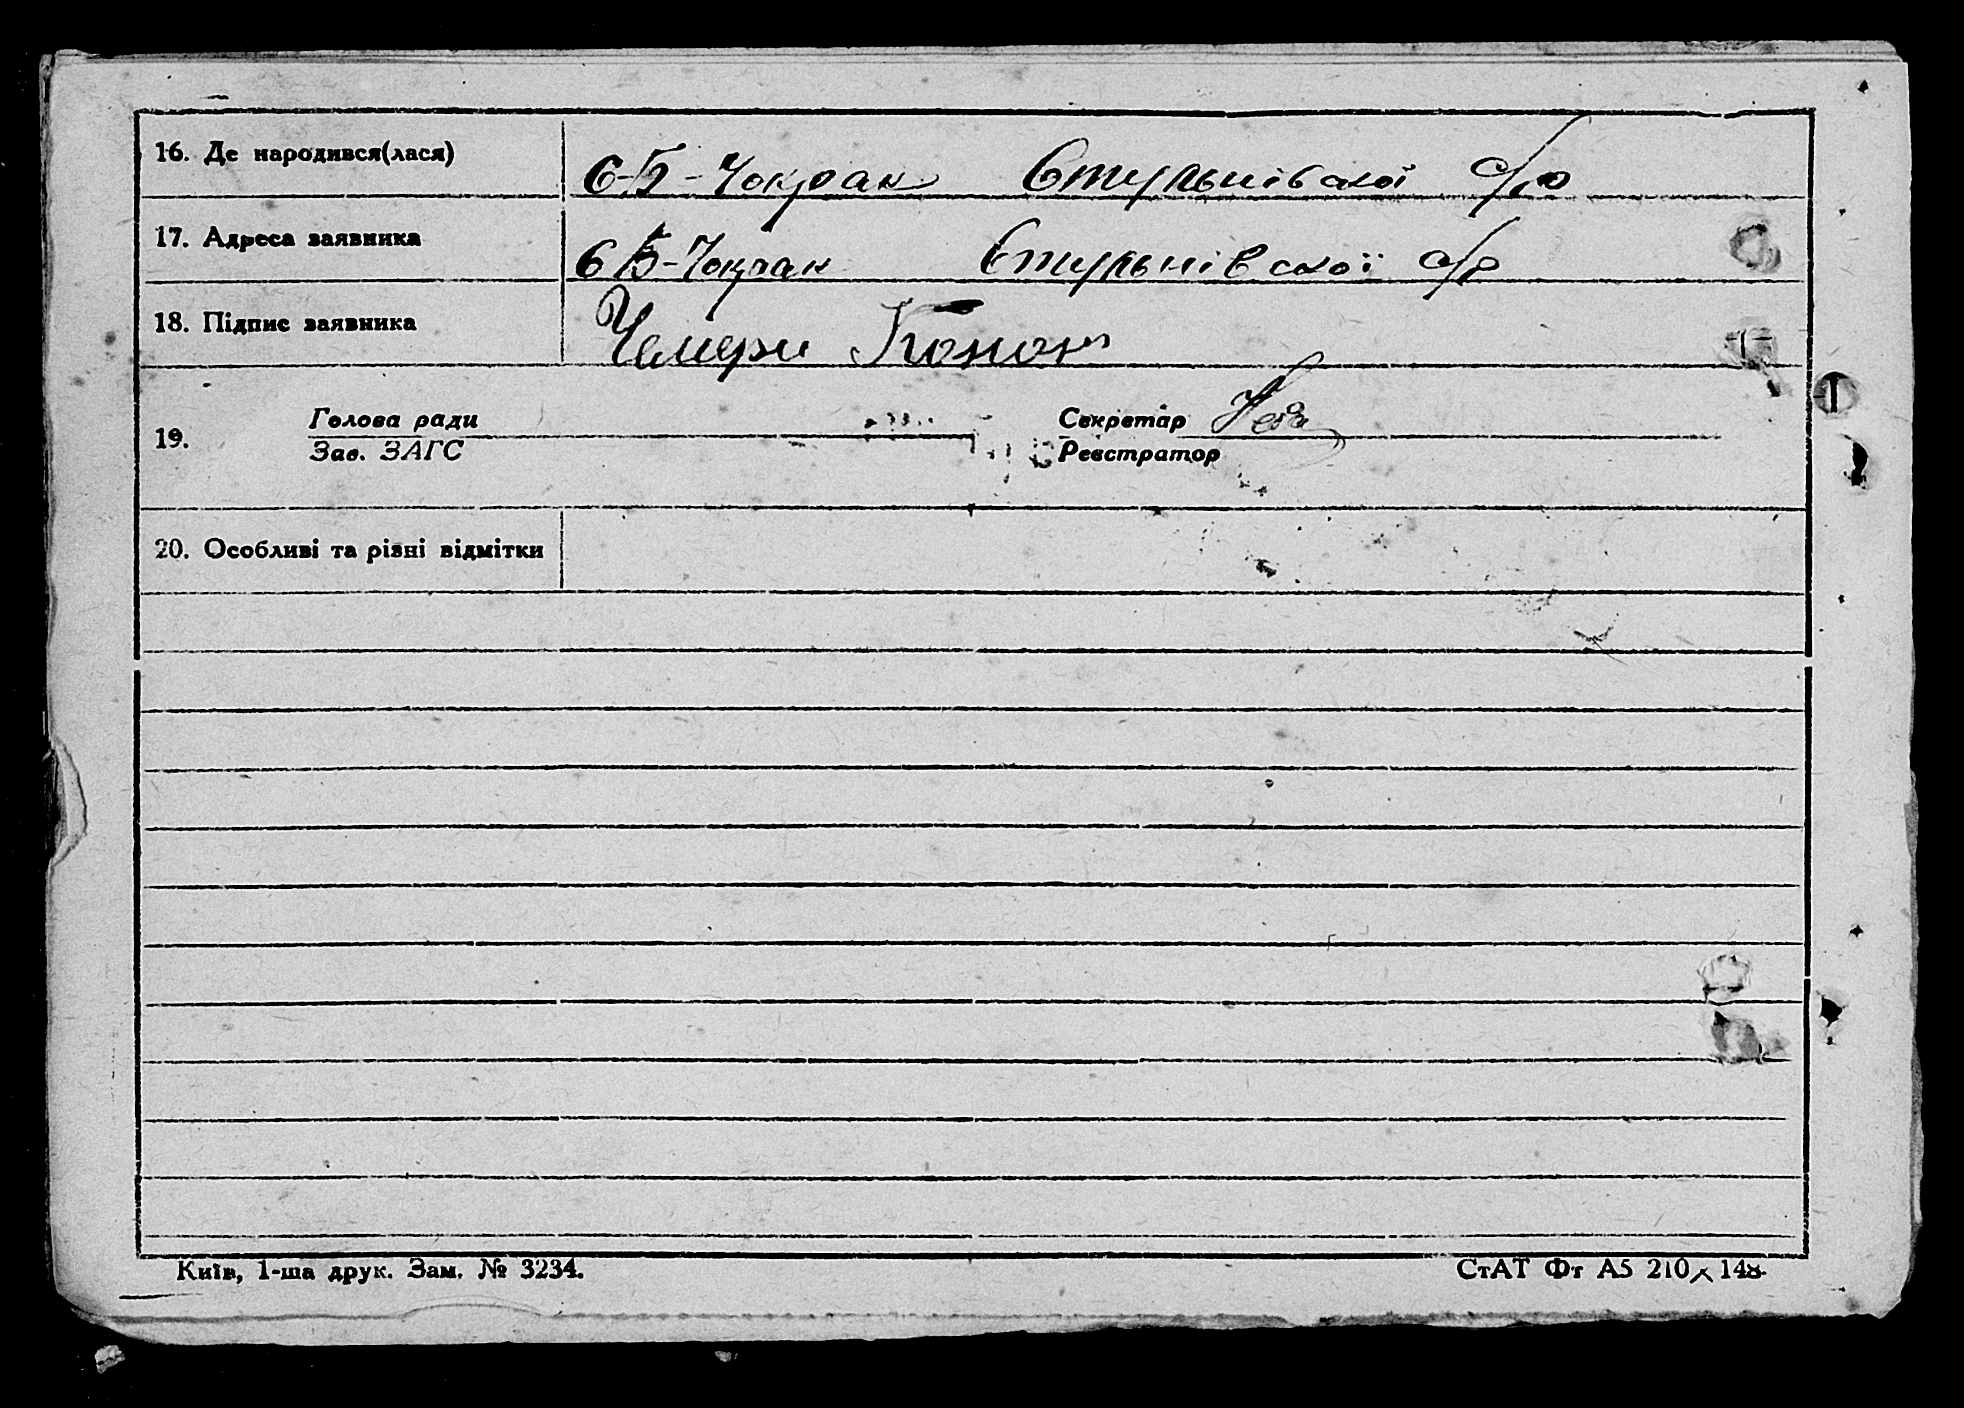 16. Де народився(лася) с-Б-Чокрак Єтулы́нівської с/р
17. Адреса заявника с Б-Чокрак Єтульнівської с/р
18. Підпис заявника Чемери Конон
19. Голова ради Секретар
Зав. ЗАГС Реєстратор
20. Особливі та різні відмітки
Київ, 1-ша друк. Зам. № 3234. СтАТ Фт А5 210 × 148.